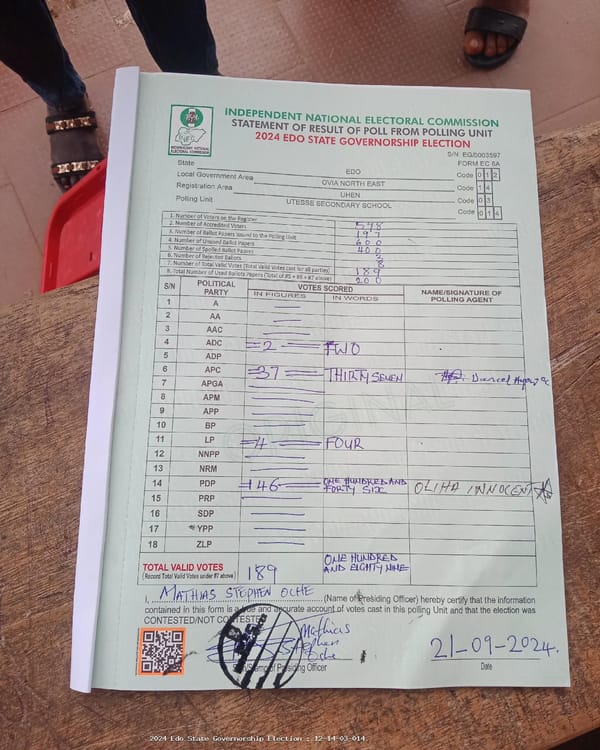 INDEPENDENT NATIONAL ELECTORAL COMMISSION
STATEMENT OF RESULT OF POLL FROM POLLING UNIT
2024 EDO STATE GOVERNORSHIP ELECTION
S/N EG/5003597
FORM EC 8A
State EDO Code 012
Local Government Area OVIA NORTH EAST Code 14
Registration Area UHEN Code 03
Polling Unit UTESSE SECONDARY SCHOOL Code 014
1. Number of Voters on the Register 598
2. Number of Accredited Voters 197
3. Number of Ballot Papers Issued to the Polling Unit 600
4. Number of Unused Ballot Papers 400
5. Number of Spoiled Ballot Papers 3
6. Number of Rejected Ballots 8
7. Number of Total Valid Votes (Total Valid Votes cast for all parties) 189
8. Total Number of Used Ballots Papers (Total of #5 + #6 + #7 above) 200
S/N POLITICAL PARTY VOTES SCORED NAME/SIGNATURE OF POLLING AGENT
IN FIGURES IN WORDS
1 A
2 AA
3 AAC
4 ADC =2= TWO
5 ADP
6 APC =37= THIRTY SEVEN
7 APGA
8 APM
9 APP
10 BP
11 LP =4= FOUR
12 NNPP
13 NRM
14 PDP 146 ONE HUNDRED AND FORTY SIX OLIHA INNOCENT
15 PRP
16 SDP
17 YPP
18 ZLP
TOTAL VALID VOTES 189 ONE HUNDRED AND EIGHTY NINE
(Record Total Valid Votes under #7 above)
I, MATHIAS STEPHEN OCHE (Name of Presiding Officer) hereby certify that the information
contained in this form is a true and accurate account of votes cast in this polling Unit and that the election was
CONTESTED/NOT CONTESTED
Mathias
Stephen
Oche
Stamp of Presiding Officer
21-09-2024.
Date
2024 Edo State Governorship Election : 12-14-03-014